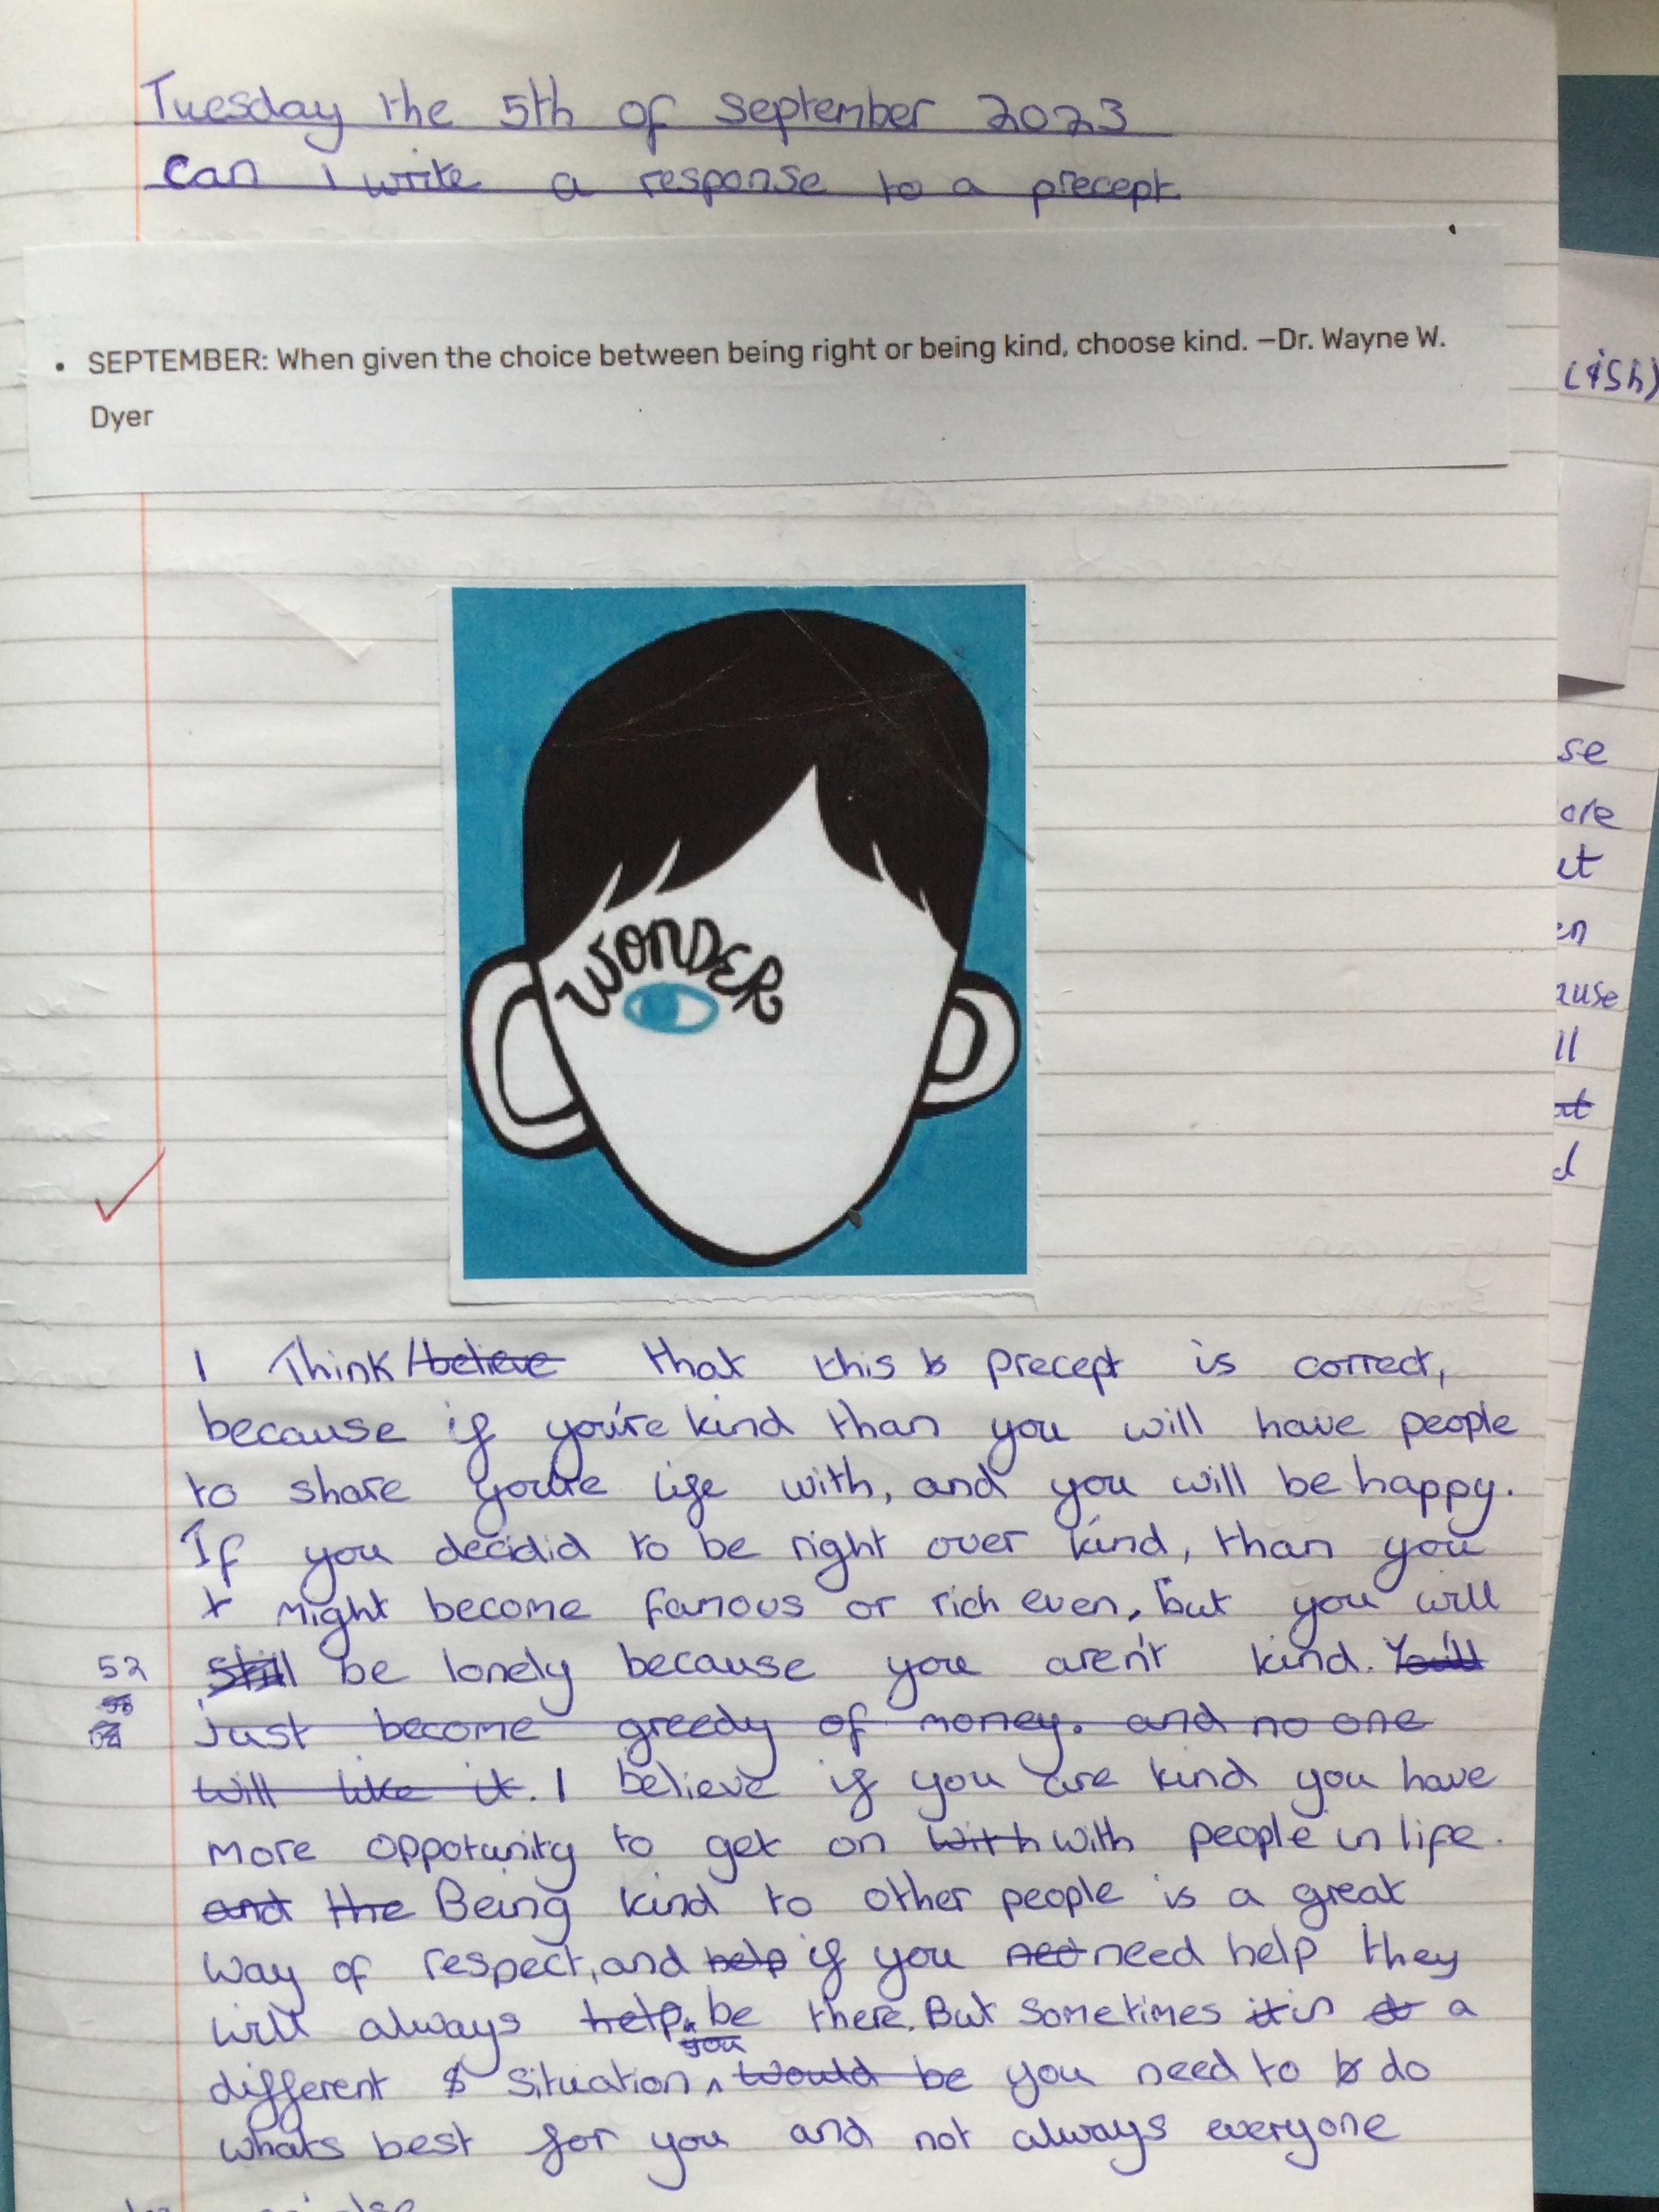 Tuesday the 5th of September 2023
Can I write a response to a precept
• SEPTEMBER: When given the choice between being right or being kind, choose kind. —Dr. Wayne W.
Dyer
(ish)
WONDER
se
ore
ut
en
ause
ll
at
d
I Think/believe that this b precept is correct,
because if you're kind than you will have people
to share you're life with, and you will be happy.
If you decidid to be right over kind, than you
t might become famous or rich even, but you will
52 still be lonely because you aren't kind. You'll
just become greedy of money. and no one
will like it. I believe if you are kind you have
more oppotunity to get on with with people in life.
and the Being kind to other people is a great
way of respect, and help if you ned need help they
will always help be there. But sometimes it in a
you
different s situation, would be you need to b do
whats best for you and not always everyone
else